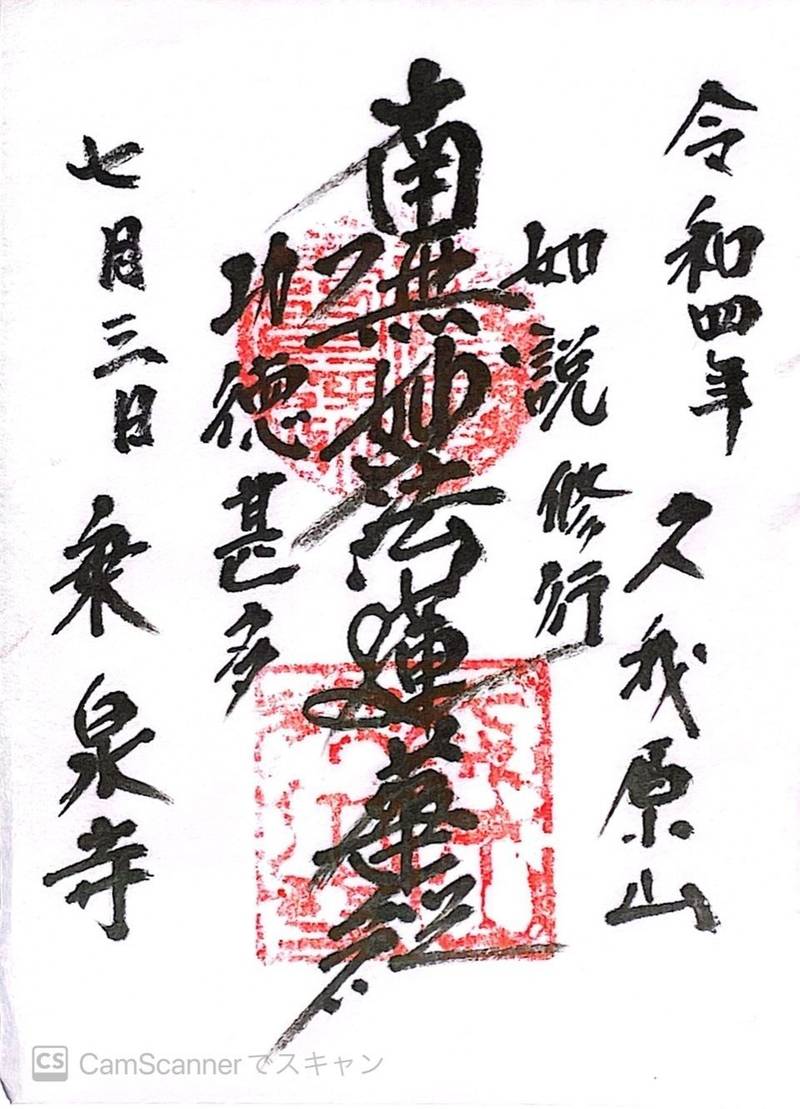 令和四年 久我原山
如説修行
南無妙法蓮華経
功徳甚多
七月三日 乗泉寺
CS CamScannerでスキャン